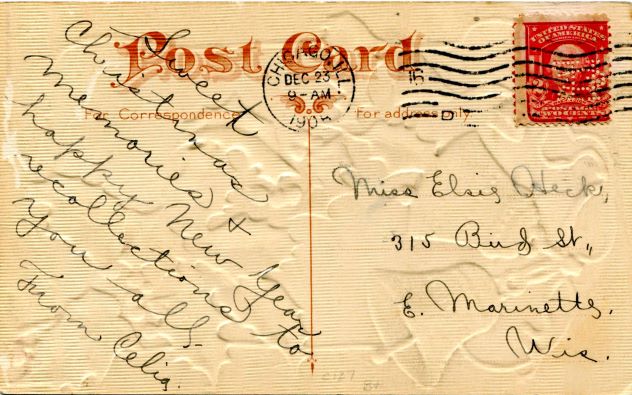 Post Card
For Correspondence
For address only
CHICAGO, ILL.
DEC 23
9-AM
190
UNITED STATES
OF AMERICA
Sweet
Christmas
memories &
happy New Year
recollections to
you all.
From Celia.
Miss Elsie Heck,
315 Bird St.,
E. Marinette,
Wis.